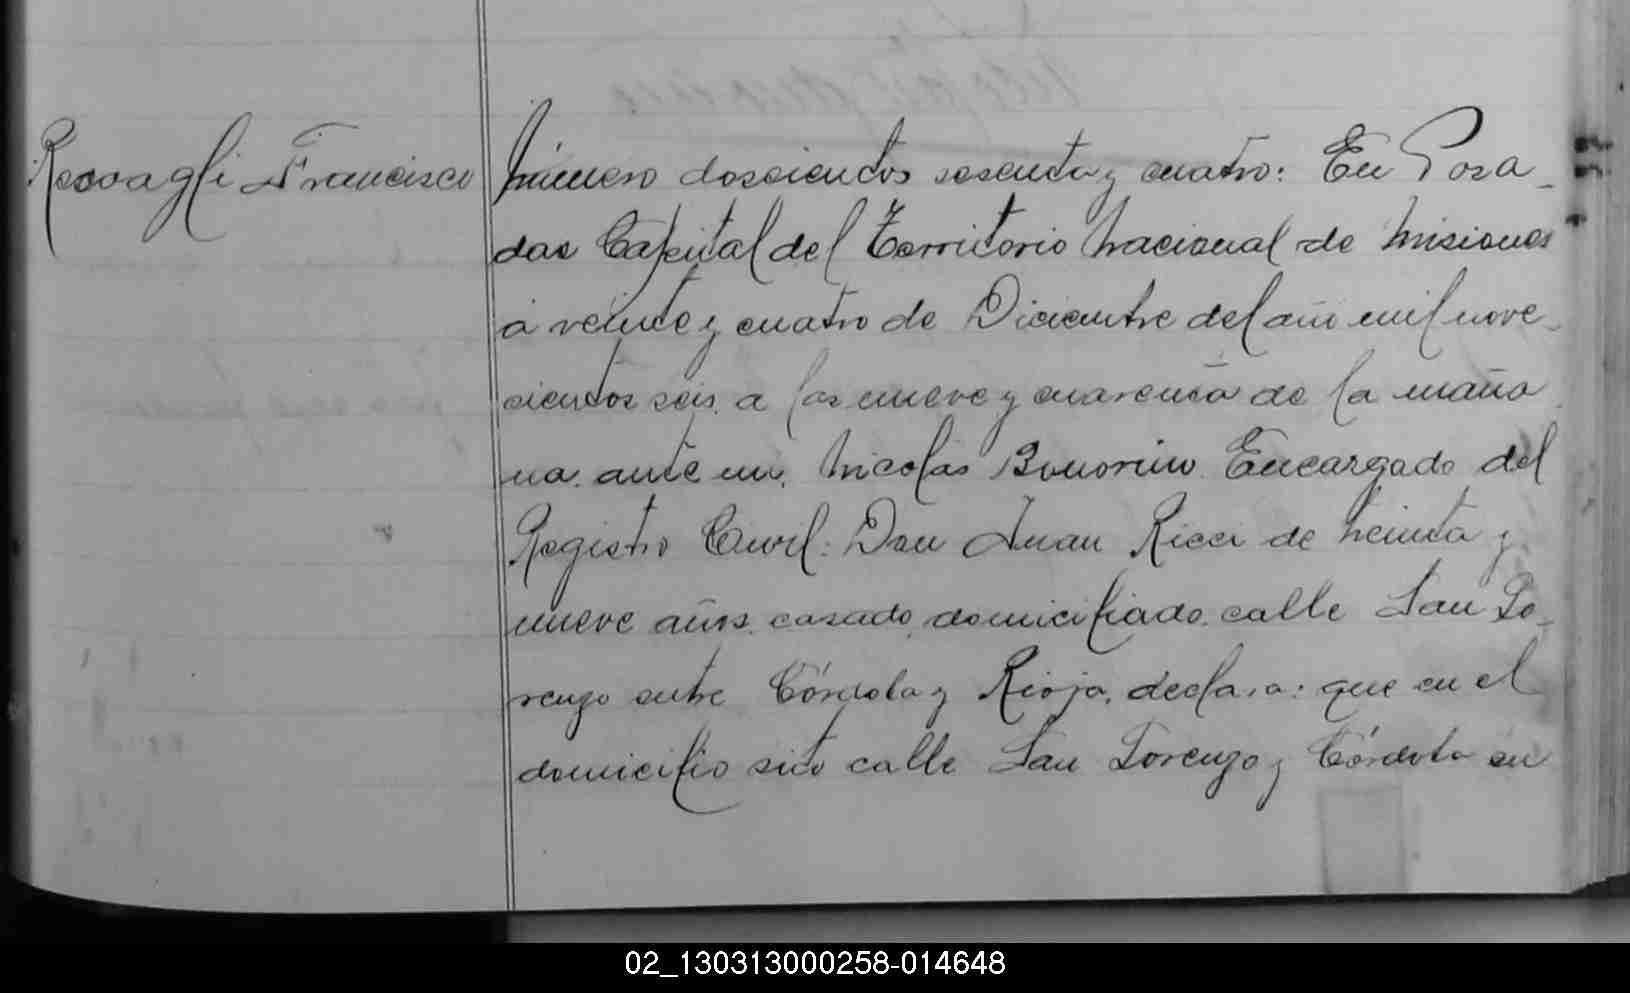 Resoagli Francisco
Número doscientos sesenta y cuatro: En Posa-
das Capital del Territorio Nacional de Misiones
á veinte y cuatro de Diciembre del año mil nove-
cientos seis, a las nueve y cuarenta de la maña-
na, ante mi, Nicolas Bonorino Encargado del
Registro Civil: Don Juan Ricci de treinta y
nueve años, casado, domiciliado calle San Lo-
renzo entre Córdoba y Rioja, declara: que en el
domicilio sito calle San Lorenzo y Córdoba en
02_130313000258-014648